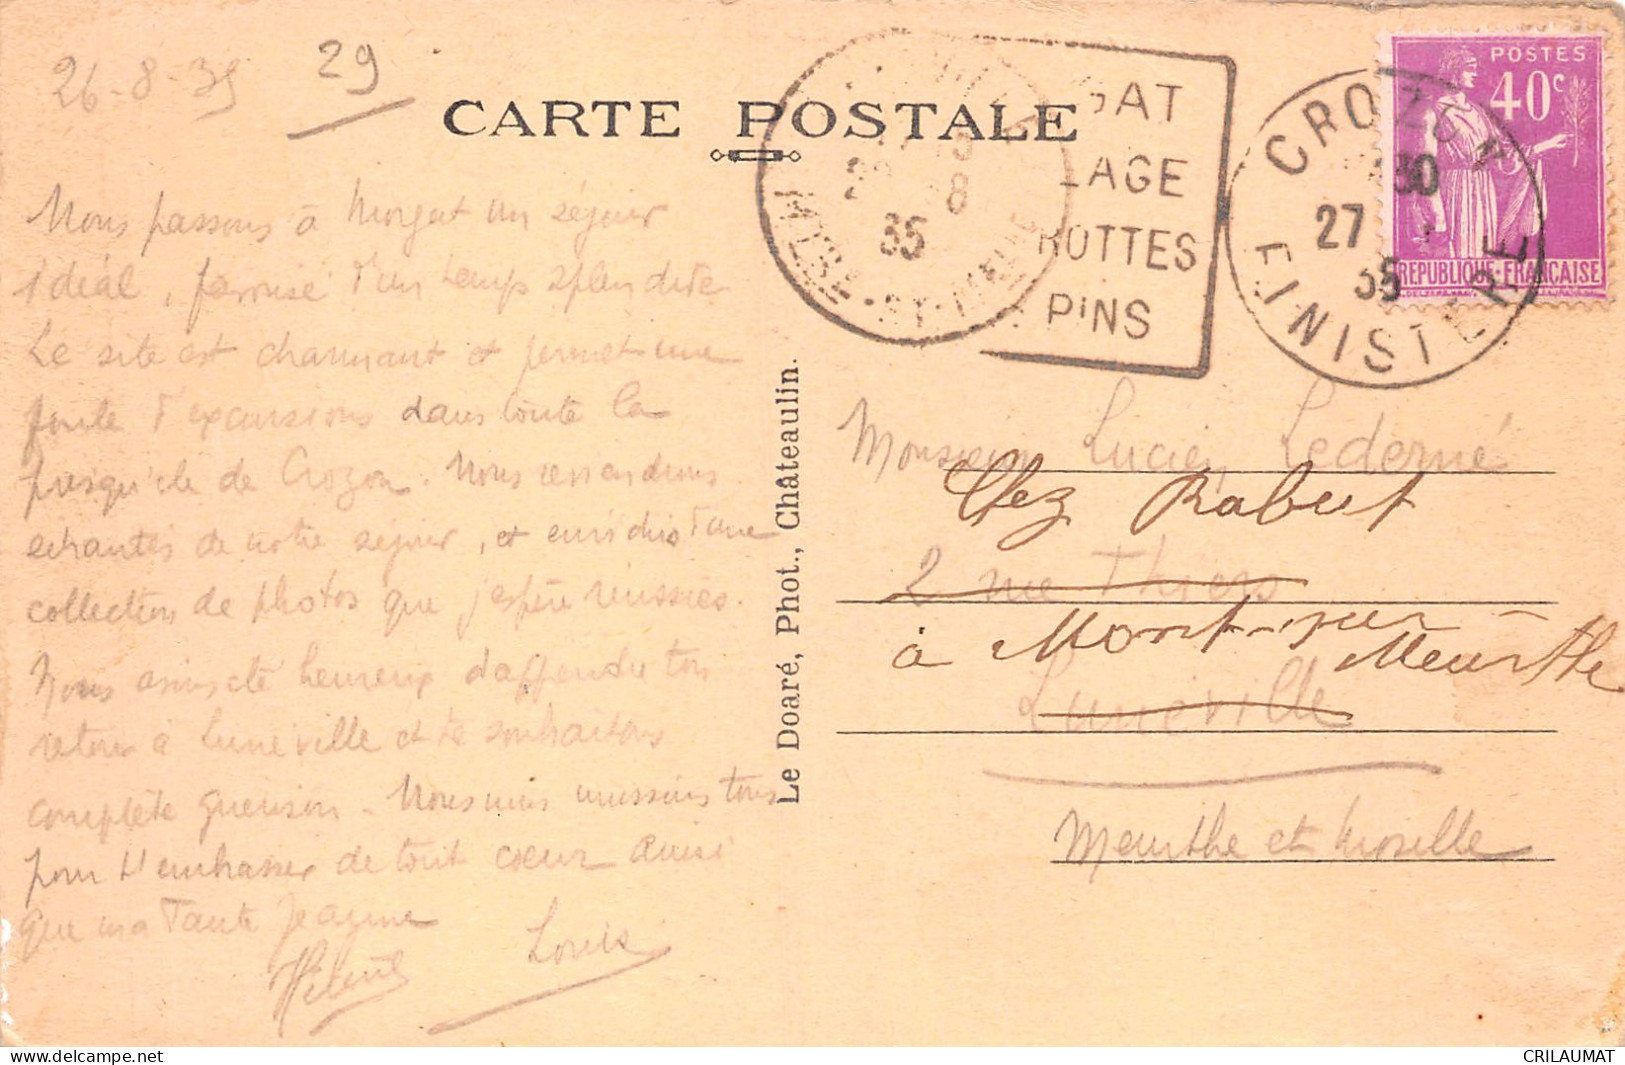 26-8-35
29
CARTE POSTALE
Nous passons à Morgat un séjour
idéal, favorisé d'un temps splendide
Le site est charmant et permet une
foule d'excursions dans toute la
presqu'ile de Crozon. Nous reviendrons
enchantés de notre séjour, et enrichis d'une
collection de photos que j'espère réussies.
Nous avons été heureux d'apprendre ton
retour à Lunéville et te souhaitons
complète guérison. Nous nous unissons tous
pour t'embrasser de tout coeur ainsi
que ma Tante
Hélène
Louis
Le Doaré, Phot., Châteaulin.
35
MTHE-ET-MOSELLE
GAT
LAGE
ROTTES
PINS
CROZON
30
27
35
FINISTERE
POSTES
40c
REPUBLIQUE-FRANCAISE
Monsieur Lucien Lederné
Chez Rabut
2 rue Thiers
à Mont-sur
Meurthe
Lunéville
Meurthe et Moselle
CRILAUMAT
delcampe.net